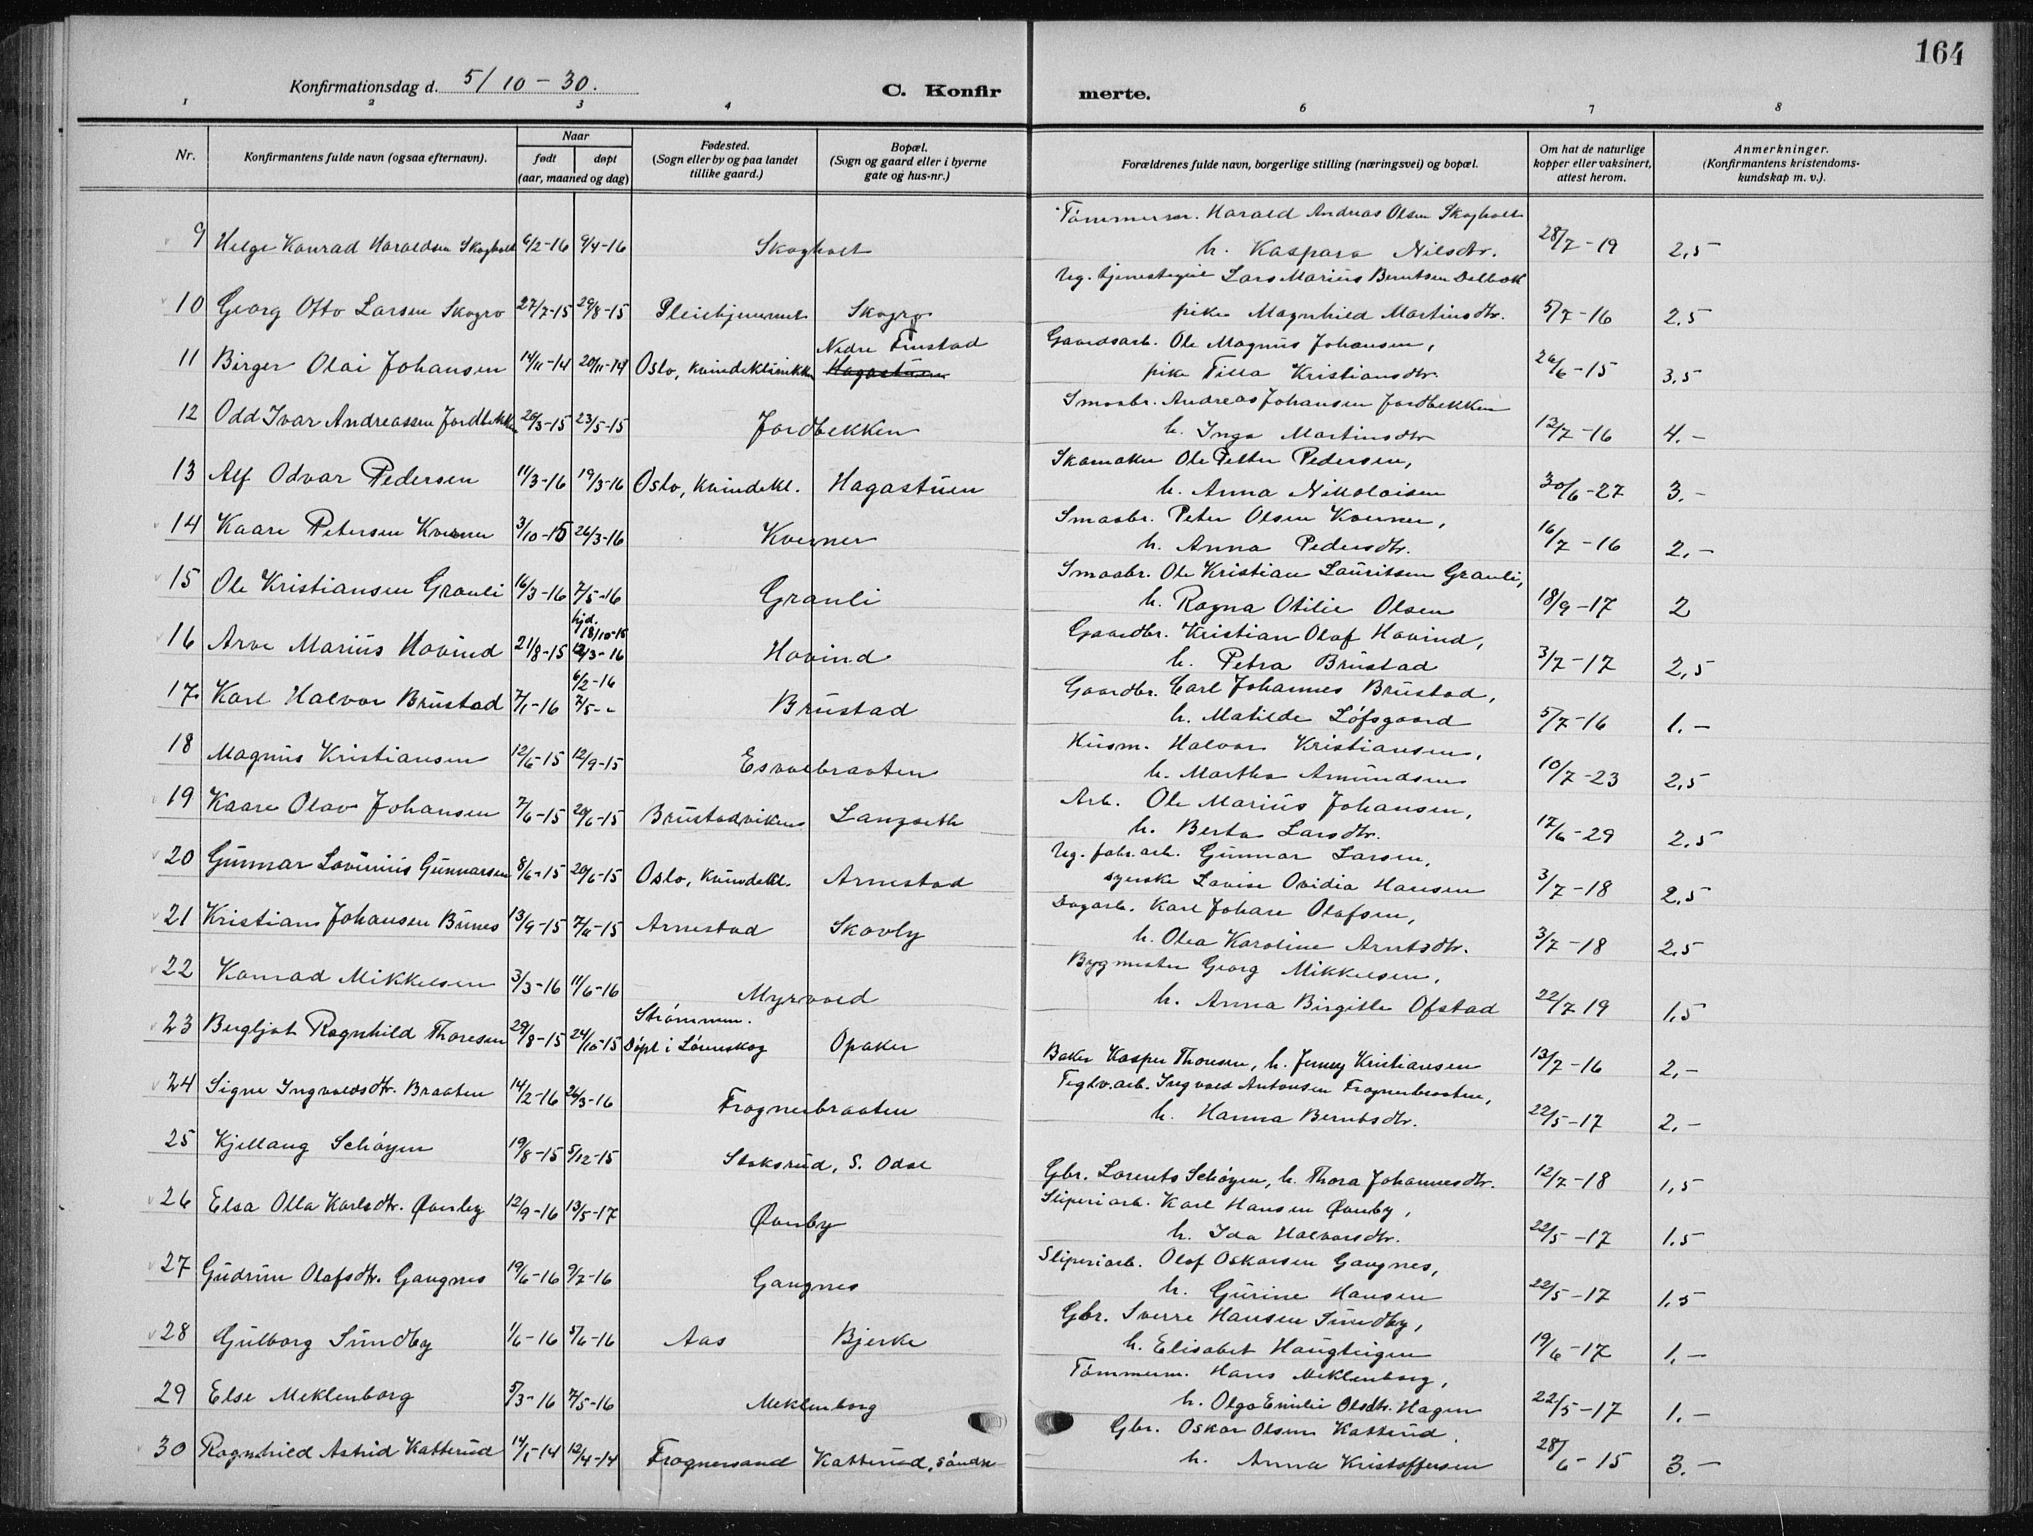 164
Konfirmationsdag d. 5/10 - 30.
C. Konfirmerte.
1 2 3 4 6 7 8
Nr. Konfirmantens fulde navn (ogsaa efternavn). Naar født døpt (aar, maaned og dag) Fødested. (Sogn eller by og paa landet tillike gaard.) Bopæl. (Sogn og gaard eller i byerne gate og hus-nr.) Forældrenes fulde navn, borgerlige stilling (næringsvei) og bopæl. Om hat de naturlige kopper eller vaksinert, attest herom. Anmerkninger. (Konfirmantens kristendoms-kundskap m. v.).
Tømmerm. Harald Andreas Olsen Skogholt
9 Helge Konrad Haraldsen Skogholt 6/2-16 9/4-16 Skogholt h. Kaspara Nilsdtr. 28/7-19 2,5
Ug. tjenestegut Lars Marius Berntsen Delbæk
10 Georg Otto Larsen Skogro 27/7-15 29/8-15 Pleiehjemmet Skogro pike Magnhild Martinsdtr. 5/7-16 2.5
Nedre Finstad Gaardsarb. Ole Magnus Johansen,
11 Birger Olai Johansen 14/11-14 20/11-14 Oslo, kvindeklinikken Hagastuen pike Tilla Kristiansdtr. 26/6-15 3,5
Smaabr. Andreas Johansen Jordbekken
12 Odd Ivar Andreassen Jordbekken 25/3-15 23/5-15 Jordbekken h. Inga Martinsdtr 12/7-16 4.-
Skomaker Ole Petter Pedersen,
13 Alf Odvar Pedersen 11/3-16 19/3-16 Oslo, kvindekl. Hagastuen h. Anna Nikolaisen 30/6-27 3.-
Smaabr. Peter Olsen Kverner,
14 Kaare Petersen Kverner 3/10-15 26/3-16 Kverner h. Anna Pedersdtr. 16/7-16 2.-
Smaabr. Ole Kristian Lauritsen Granli,
15 Ole Kristiansen Granli 16/3-16 7/5-16 Granli h. Ragna Otilie Olsen 18/9-17 2
hjd. 18/10-15 Gaardbr. Kristian Olaf Hovind,
16 Arve Marius Hovind 21/8-15 12/3-16 Hovind h. Petra Brustad 3/7-17 2,5
6/2-16 Gaardbr. Carl Johannes Brustad,
17. Karl Halvor Brustad 7/1-16 7/5-- Brustad h. Matilde Løfsgaard 5/7-16 1.-
Husm. Halvor Kristiansen,
18 Magnus Kristiansen 12/6-15 12/9-15 Esvalbraaten h. Martha Amundsen 10/7-23 2,5
Arb. Ole Marius Johansen,
19 Kaare Olav Johansen 7/6-15 20/6-15 Brustadviken Langseth h. Berta Larsdtr. 17/6-29 2.5
Ug. fabr.arb. Gunnar Larsen,
20 Gunnar Lovinius Gunnarsen 8/6-15 20/6-15 Oslo, kvindekl. Arnestad syerske Lovise Ovidia Hansen 3/7-18 2.5
Dagarb. Karl Johan Olafsen,
21 Kristian Johansen Bunes 13/9-15 7/11-15 Arnestad Skovly h. Olea Karoline Arntsdtr. 3/7-18 2.5
Bygmester Georg Mikkelsen,
22 Konrad Mikkelsen 3/3-16 11/6-16 Myrvold h. Anna Birgitte Ofstad 22/7 19 1,5
Strømmen.
23 Bergljot Ragnhild Thoresen 29/8-15 24/10-15 Døpt i Lørenskog Opaker Baker Kasper Thoresen, h. Jenny Kristiansen 13/7-16 2,-
Teglv.arb. Ingvald Antonsen Frognerbraaten,
24 Signe Ingvaldsdtr. Braaten 14/2-16 26/3-16 Frognerbraaten h. Hanna Berntsdtr. 22/5-17 2.-
25 Kjellaug Schøyen 19/8-15 5/12-15 Stoksrud, S. Odal Gbr. Lorents Schøyen, h. Thora Johannesdtr. 12/7-18 1,5
Sliperiarb. Karl Hansen Øvnby,
26 Elsa Olla Karlsdtr. Øvnby 12/9-16 13/5-17 Øvnby h. Ida Halvorsdtr. 22/5-17 1.5
Sliperiarb. Olaf Oskarsen Gangnes,
27 Gudrun Olafsdtr. Gangnes 19/6-16 9/7-16 Gangnes h. Gurine Hansen 22/5-17 1,5
Gbr. Sverre Hansen Sundby,
28 Gulborg Sundby 1/6-16 5/6-16 Aas Bjerke h. Elisabet Haugteigen 19/6-17 1,-
Tømmerm. Hans Meklenborg,
29 Else Meklenborg 5/3-16 7/5-16 Meklenborg h. Olga Emilie Olsdtr. Hagen 22/5-17 1.-
Gbr. Oskar Olsen Katterud.
30 Ragnhild Astrid Katterud 14/1-14 12/4-14 Frognersand Katterud, søndre h. Anna Kristoffersen 28/6-15 3.-